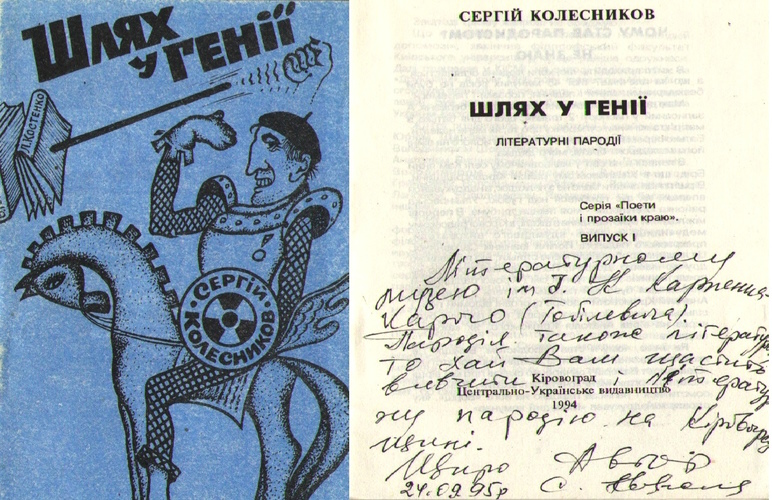 ШЛЯХ
У ГЕНІЇ
Л. КОСТЕНКО
СЕРГІЙ
КОЛЕСНИКОВ
СЕРГІЙ КОЛЕСНИКОВ
ШЛЯХ У ГЕНІЇ
ЛІТЕРАТУРНІ ПАРОДІЇ
Серія «Поети
і прозаїки краю».
ВИПУСК І
Літературному
музею ім. І. К Карпенка-
Карого (Тобілевича).
Пародія також література
то хай Вам щастить
вивчити і літератур
Кіровоград
Центрально-Українське видавництво
1994
ну пародію на Кіровоград
щині.
Щиро Автор
24.09.95р С.